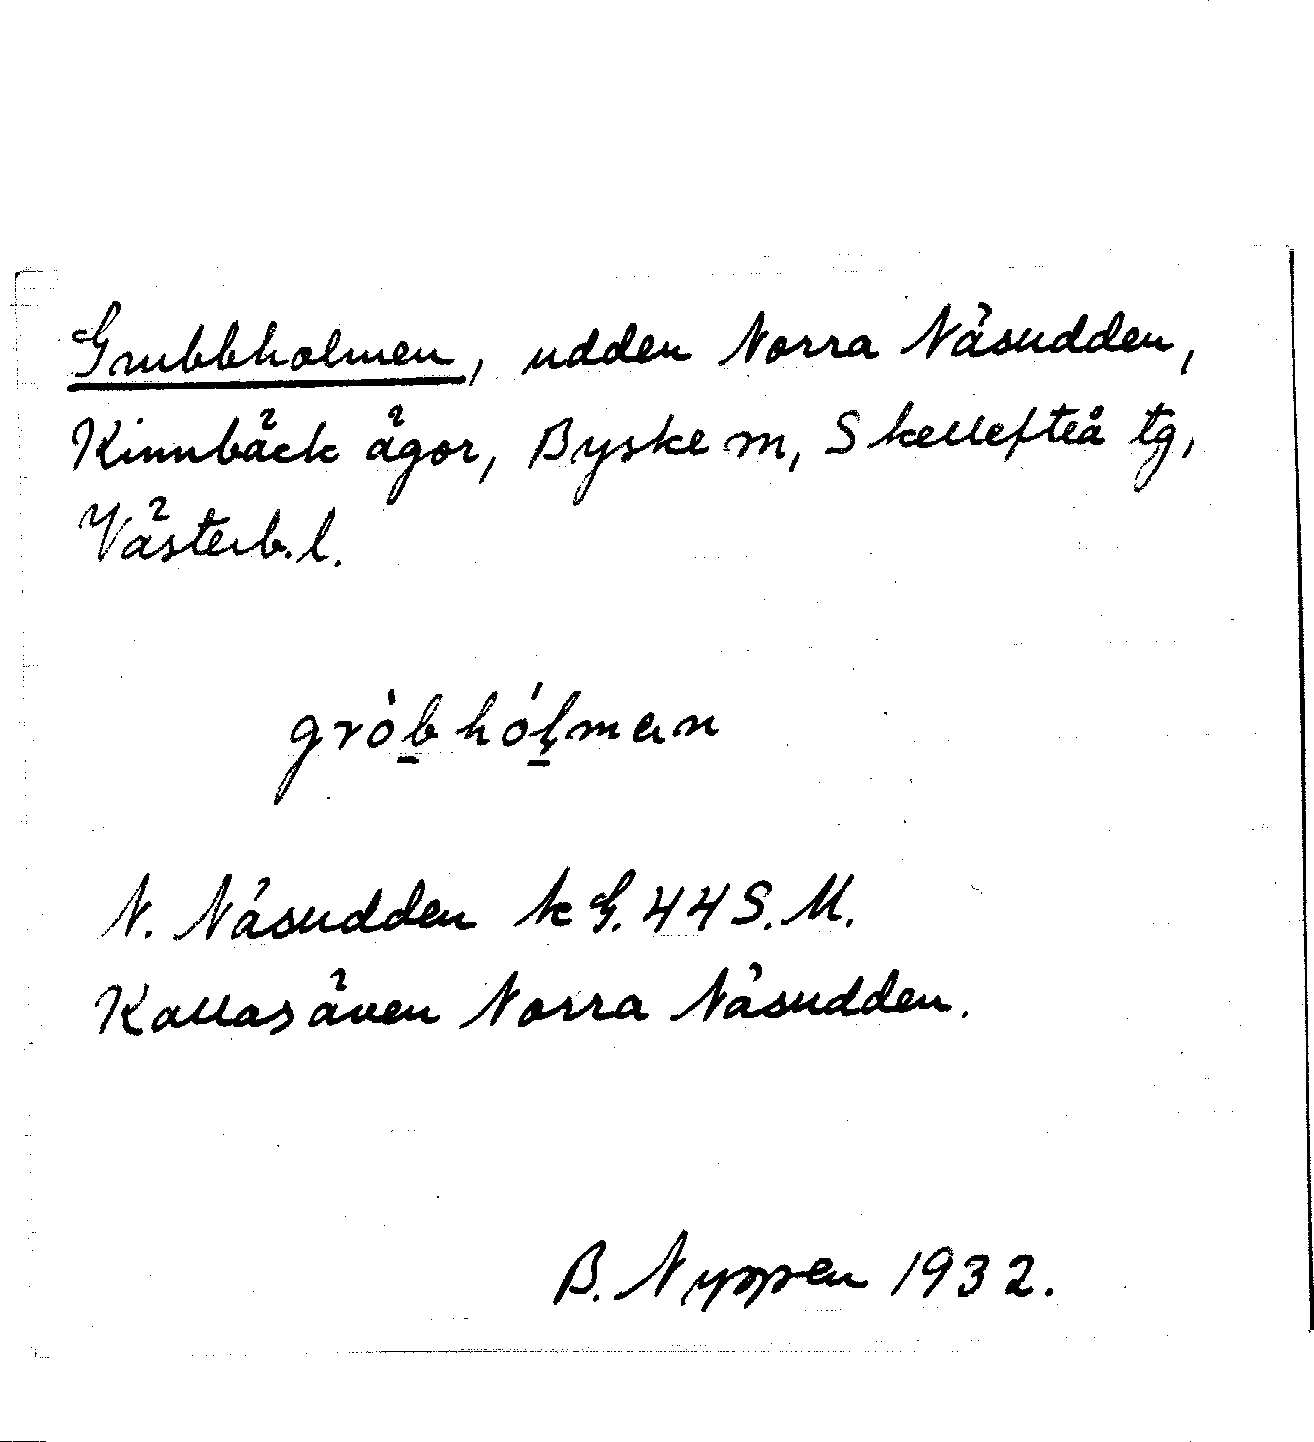 Grubbholmen, udden Norra Näsudden,
Kinnbäck ägor, Byske m, Skellefteå tg,
Västerb. l.
gròbhólman
N. Näsudden k G. 44 S. M.
Kallas även Norra Näsudden.
B. Nyppen 1932.